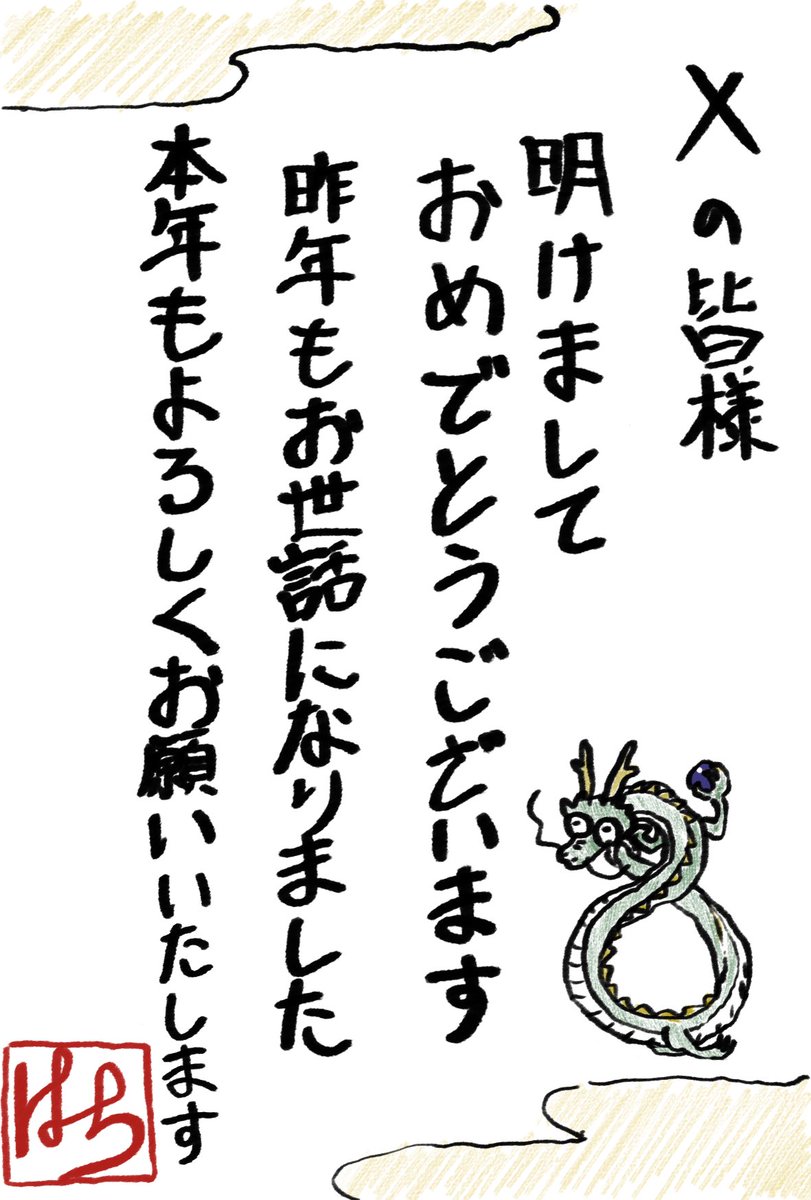 Xの皆様
明けまして
おめでとうございます
昨年もお世話になりました
本年もよろしくお願いいたします
はち